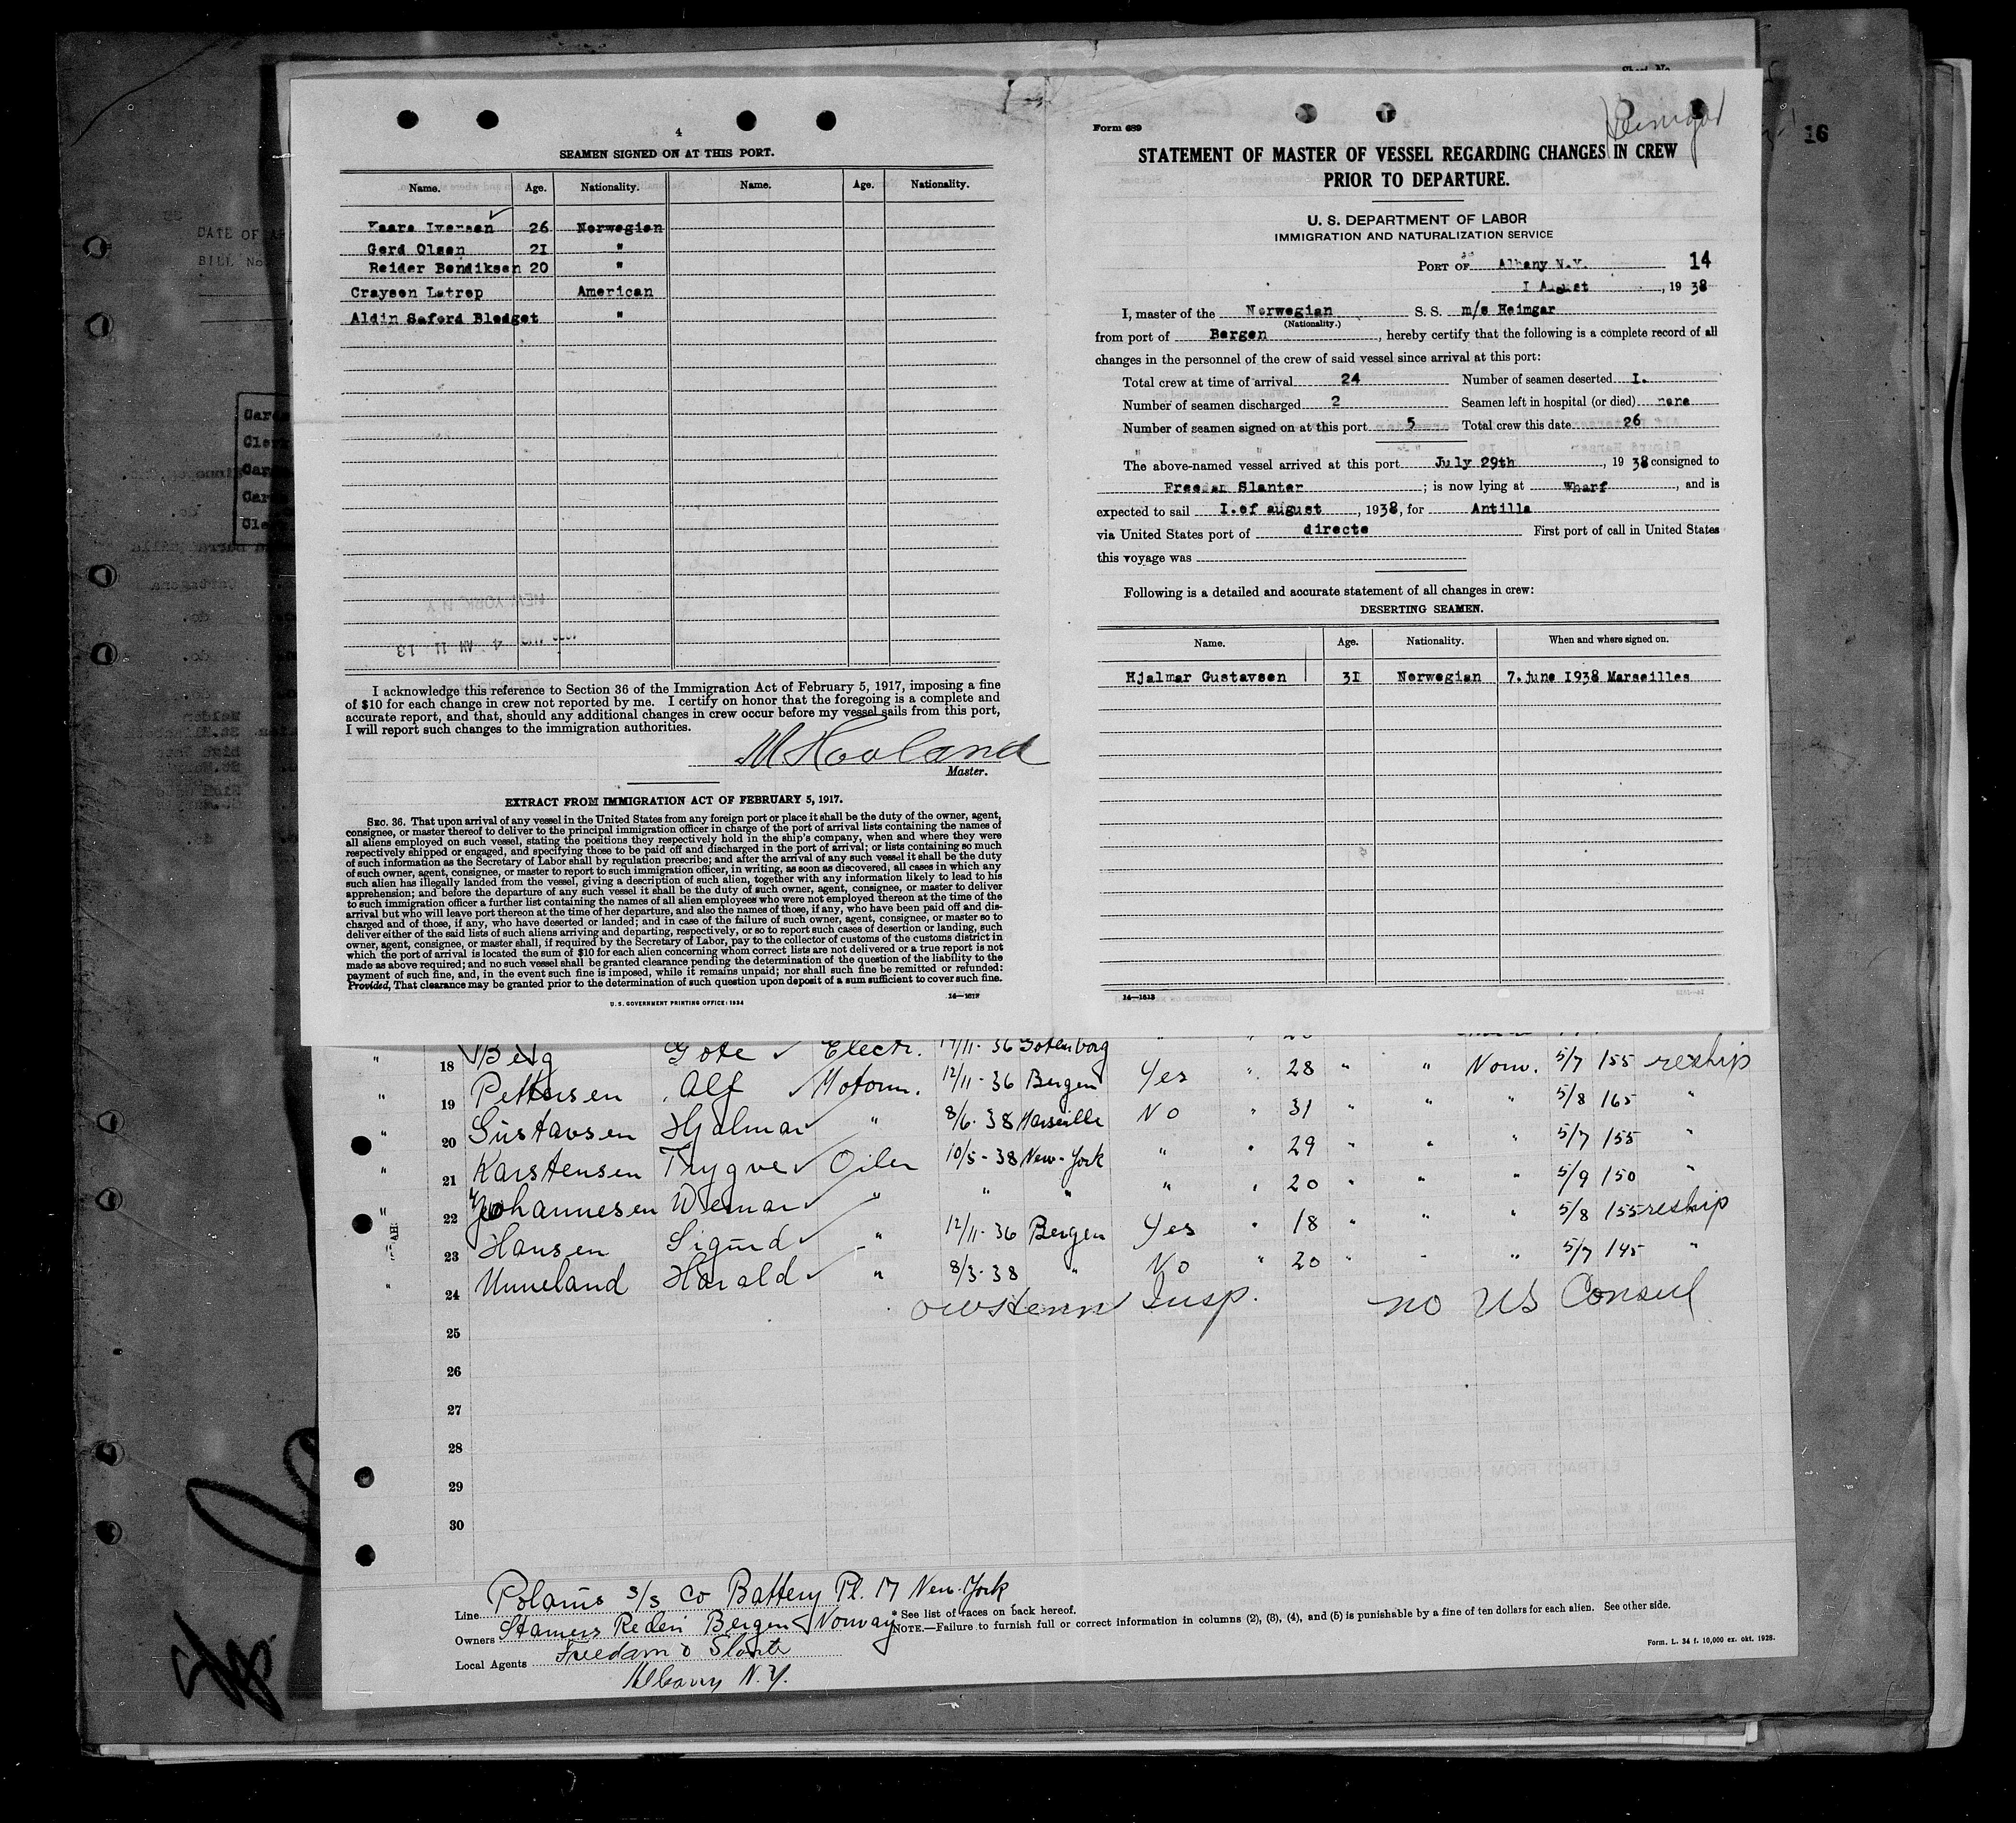 4
SEAMEN SIGNED ON AT THIS PORT.
Name. Age. Nationality. Name. Age. Nationality.
Kaare Iversen 26 Norwegian
Gerd Olsen 21 "
Reider Bendiksen 20 "
Craysen Latrop American
Aldin Saford Bledget "
I acknowledge this reference to Section 36 of the Immigration Act of February 5, 1917, imposing a fine
of $10 for each change in crew not reported by me. I certify on honor that the foregoing is a complete and
accurate report, and that, should any additional changes in crew occur before my vessel sails from this port,
I will report such changes to the immigration authorities.
M Hooland
Master.
EXTRACT FROM IMMIGRATION ACT OF FEBRUARY 5, 1917.
SEC. 36. That upon arrival of any vessel in the United States from any foreign port or place it shall be the duty of the owner, agent,
consignee, or master thereof to deliver to the principal immigration officer in charge of the port of arrival lists containing the names of
all aliens employed on such vessel, stating the positions they respectively hold in the ship's company, when and where they were
respectively shipped or engaged, and specifying those to be paid off and discharged in the port of arrival; or lists containing so much
of such information as the Secretary of Labor shall by regulation prescribe; and after the arrival of any such vessel it shall be the duty
of such owner, agent, consignee, or master to report to such immigration officer, in writing, as soon as discovered, all cases in which any
such alien has illegally landed from the vessel, giving a description of such alien, together with any information likely to lead to his
apprehension; and before the departure of any such vessel it shall be the duty of such owner, agent, consignee, or master to deliver
to such immigration officer a further list containing the names of all alien employees who were not employed thereon at the time of the
arrival but who will leave port thereon at the time of her departure, and also the names of those, if any, who have been paid off and dis-
charged and of those, if any, who have deserted or landed; and in case of the failure of such owner, agent, consignee, or master so to
deliver either of the said lists of such aliens arriving and departing, respectively, or so to report such cases of desertion or landing, such
owner, agent, consignee, or master shall, if required by the Secretary of Labor, pay to the collector of customs of the customs district in
which the port of arrival is located the sum of $10 for each alien concerning whom correct lists are not delivered or a true report is not
made as above required; and no such vessel shall be granted clearance pending the determination of the question of the liability to the
payment of such fine, and, in the event such fine is imposed, while it remains unpaid; nor shall such fine be remitted or refunded:
Provided, That clearance may be granted prior to the determination of such question upon deposit of a sum sufficient to cover such fine.
U. S. GOVERNMENT PRINTING OFFICE: 1934 14—1617
Form 689
Heimgar
16
STATEMENT OF MASTER OF VESSEL REGARDING CHANGES IN CREW
PRIOR TO DEPARTURE.
U. S. DEPARTMENT OF LABOR
IMMIGRATION AND NATURALIZATION SERVICE
PORT OF Albany N.Y. 14
I August, 1938
I, master of the Norwegian S. S. m/s Heimgar
(Nationality.)
from port of Bergen, hereby certify that the following is a complete record of all
changes in the personnel of the crew of said vessel since arrival at this port:
Total crew at time of arrival 24 Number of seamen deserted I.
Number of seamen discharged 2 Seamen left in hospital (or died) none
Number of seamen signed on at this port 5 Total crew this date 26
The above-named vessel arrived at this port July 29th, 1938 consigned to
Freedam Slanter; is now lying at Wharf, and is
expected to sail I.of august, 1938, for Antilla
via United States port of directe First port of call in United States
this voyage was
Following is a detailed and accurate statement of all changes in crew:
DESERTING SEAMEN.
Name. Age. Nationality. When and where signed on.
Hjalmar Gustavsen 31 Norwegian 7.june 1938 Marseilles
14—1613
" 18 Berg Gote Electr. 17/11-36 Gotenborg
" 19 Pettersen Alf Motorm. 12/11-36 Bergen Yes " 28 " " Norw. 5/7 155 reship
" 20 Gustavsen Hjalmar " 8/6-38 Marseille No " 31 " " " 5/8 165 "
" 21 Karstensen Trygve Oiler 10/5-38 New-York " " 29 " " " 5/7 155 "
" 22 Johannesen Werner " " " " " 20 " " " 5/9 150
23 Hansen Sigurd " 12/11-36 Bergen Yes " 18 " " " 5/8 155 reship
" 24 Unneland Harald " 8/3-38 " No " 20 " " " 5/7 145 "
Insp. no US Consul
25
26
27
28
29
30
Line Polarus s/s Co Battery Pl. 17 New-York
* See list of races on back hereof.
Owners Stamers Rederi Bergen Norway
NOTE.—Failure to furnish full or correct information in columns (2), (3), (4), and (5) is punishable by a fine of ten dollars for each alien. See other side.
Local Agents Freedam & Slanter
Albany N.Y.
Form. L. 34 f. 10,000 ex. okt. 1928.